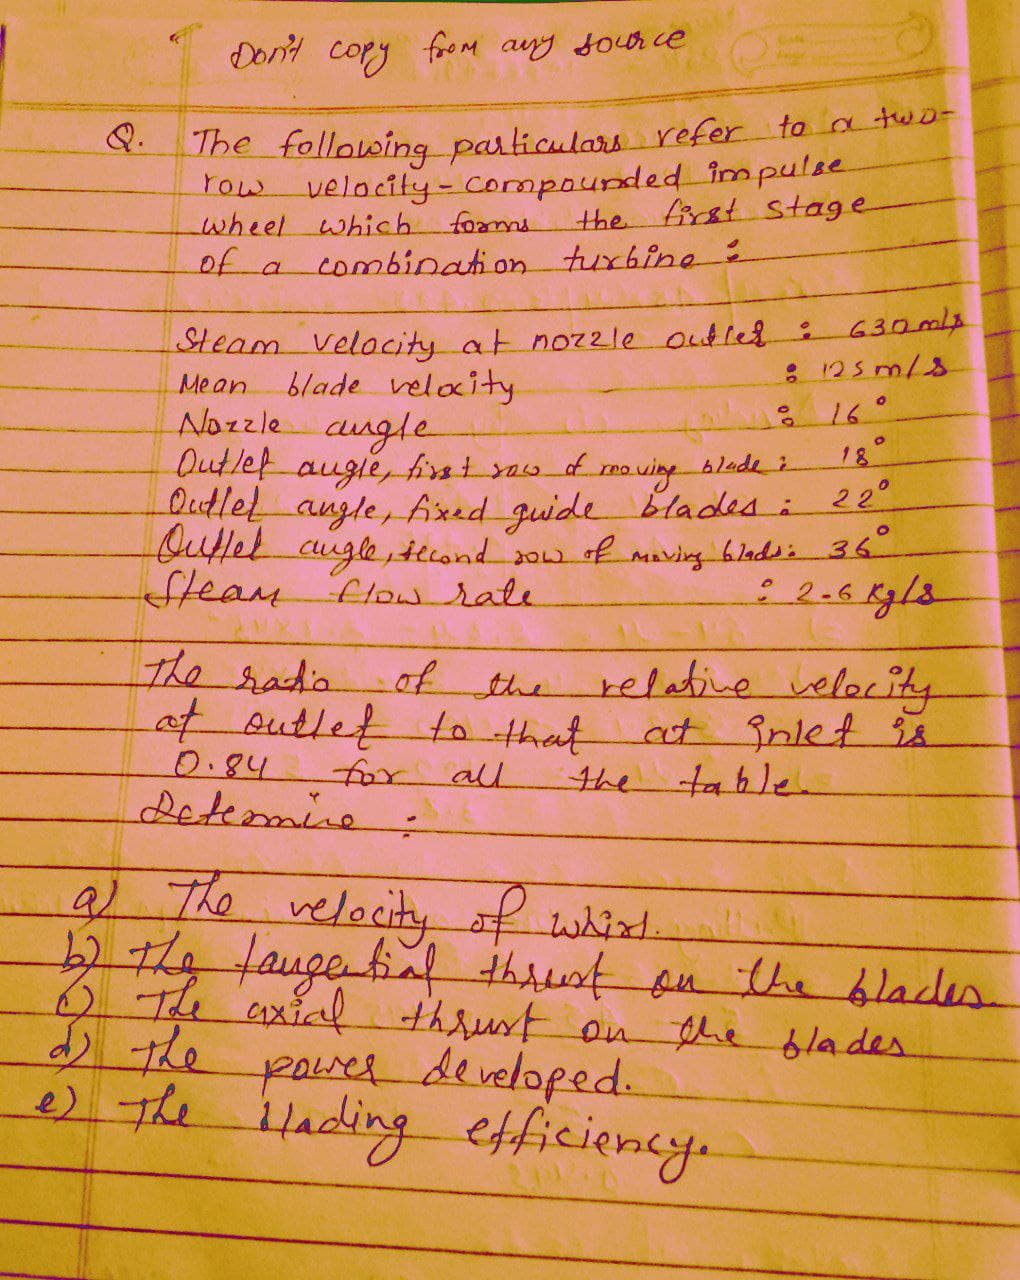 Don't copy from any source
Q. The following particulars refer to a two-
row velocity-compounded impulse
wheel which forms the first stage
of a combination turbine :
Steam velocity at nozzle outlet : 630 m/s
Mean blade velocity : 125 m/s
Nozzle angle : 16°
Outlet angle, first row of moving blade : 18°
Outlet angle, fixed guide blades : 22°
Outlet angle, second row of moving blades : 36°
Steam flow rate : 2.6 kg/s
The ratio of the relative velocity
at outlet to that at inlet is
0.84 for all the table.
Determine :
a) The velocity of whirl.
b) The tangential thrust on the blades.
c) The axial thrust on the blades
d) The power developed.
e) The blading efficiency.